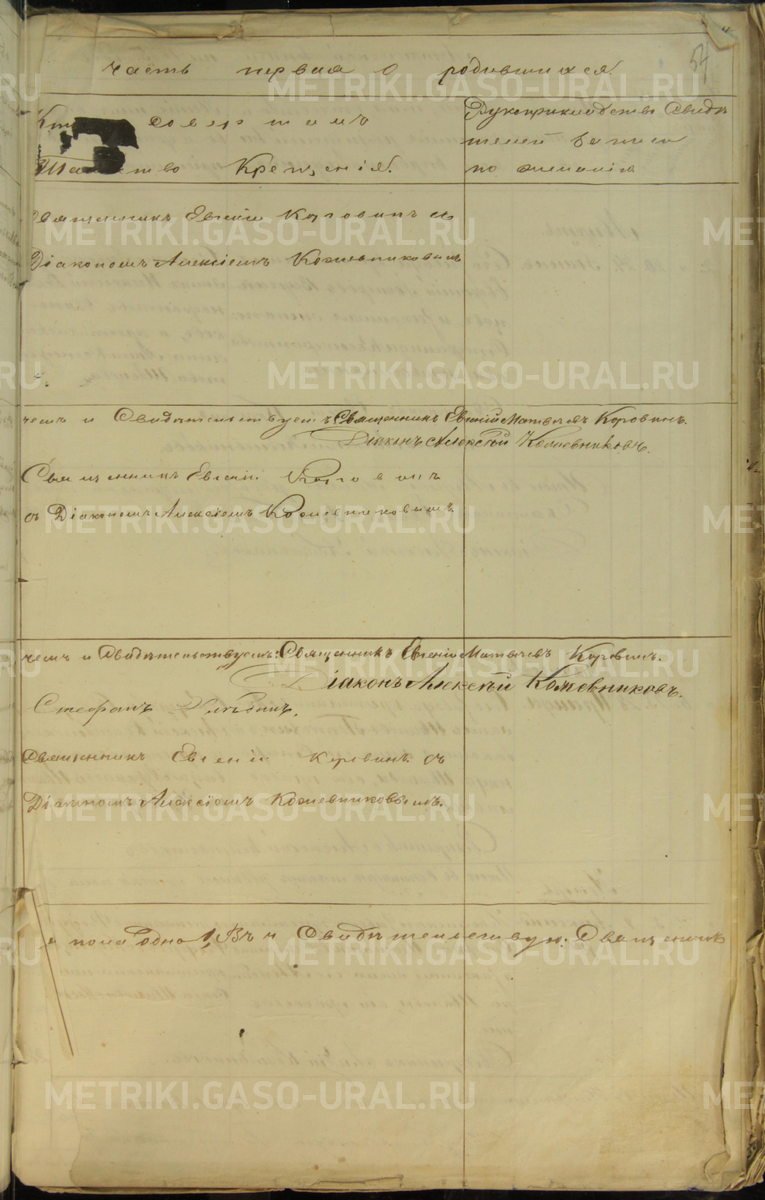 54
часть первая о родившихся.
Кто совершалъ Таинство Крещенія.
Рукоприкладство свидѣ
телей записи
по желанію
Священникъ Евгеній Коровинъ съ
Діакономъ Алексіемъ Кожевниковымъ
чемъ и Свидѣтельствуемъ: Священникъ Евгеній Матвѣевъ Коровинъ.
Діаконъ Алексѣй Кожевниковъ.
Священникъ Евгеній Коровинъ
съ Діакономъ Алексіемъ Кожевниковымъ
чемъ и Свидѣтельствуемъ: Священникъ Евгеній Матвѣевъ Коровинъ.
Діаконъ Алексѣй Кожевниковъ.
Стефанъ
Священникъ Евгеній Коровинъ съ
Діакономъ Алексіемъ Кожевниковымъ.
пола одно 1, Въ Свидѣтельствую: Священникъ
METRIKI.GASO-URAL.RU